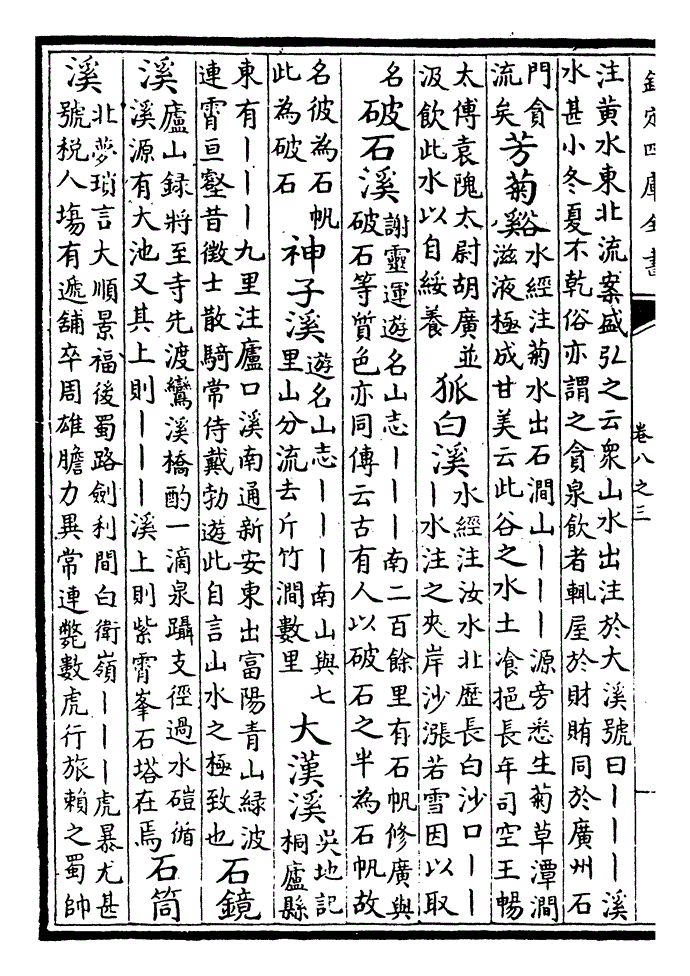 欽定四庫全書
卷八之三
注黄水東北流案盛弘之云衆山水出注於大溪號曰丨丨丨溪
水甚小冬夏不乾俗亦謂之貪泉飲者輒屋於財賄同於廣州石
門貪
流矣
芳菊谿
水經注菊水出石澗山丨丨丨源旁悉生菊草潭澗
滋液極成甘美云此谷之水土飡挹長年司空王暢
太傅袁隗太尉胡廣並
汲飲此水以自綏養
狐白溪
水經注汝水北歷長白沙口丨丨
丨水注之夾岸沙漲若雪因以取
名
破石溪
謝靈運遊名山志丨丨丨南二百餘里有石帆修廣與
破石等質色亦同傅云古有人以破石之半為石帆故
名彼為石帆
此為破石
神子溪
遊名山志丨丨丨南山與七
里山分流去斤竹澗數里
大漢溪
吳地記
桐廬縣
東有丨丨丨九里注廬口溪南通新安東出富陽青山緑波
連霄亘壑昔徵士散騎常侍戴勃遊此自言山水之極致也
石鏡
溪
廬山録將至寺先渡鸞溪橋酌一滴泉躡支徑過水磑循
溪源有大池又其上則丨丨丨溪上則紫霄峯石塔在焉
石筒
溪
北夢瑣言大順景福後蜀路劍利間白衛嶺丨丨丨虎暴尤甚
號税人塲有遞舖卒周雄膽力異常連斃數虎行旅賴之蜀帥